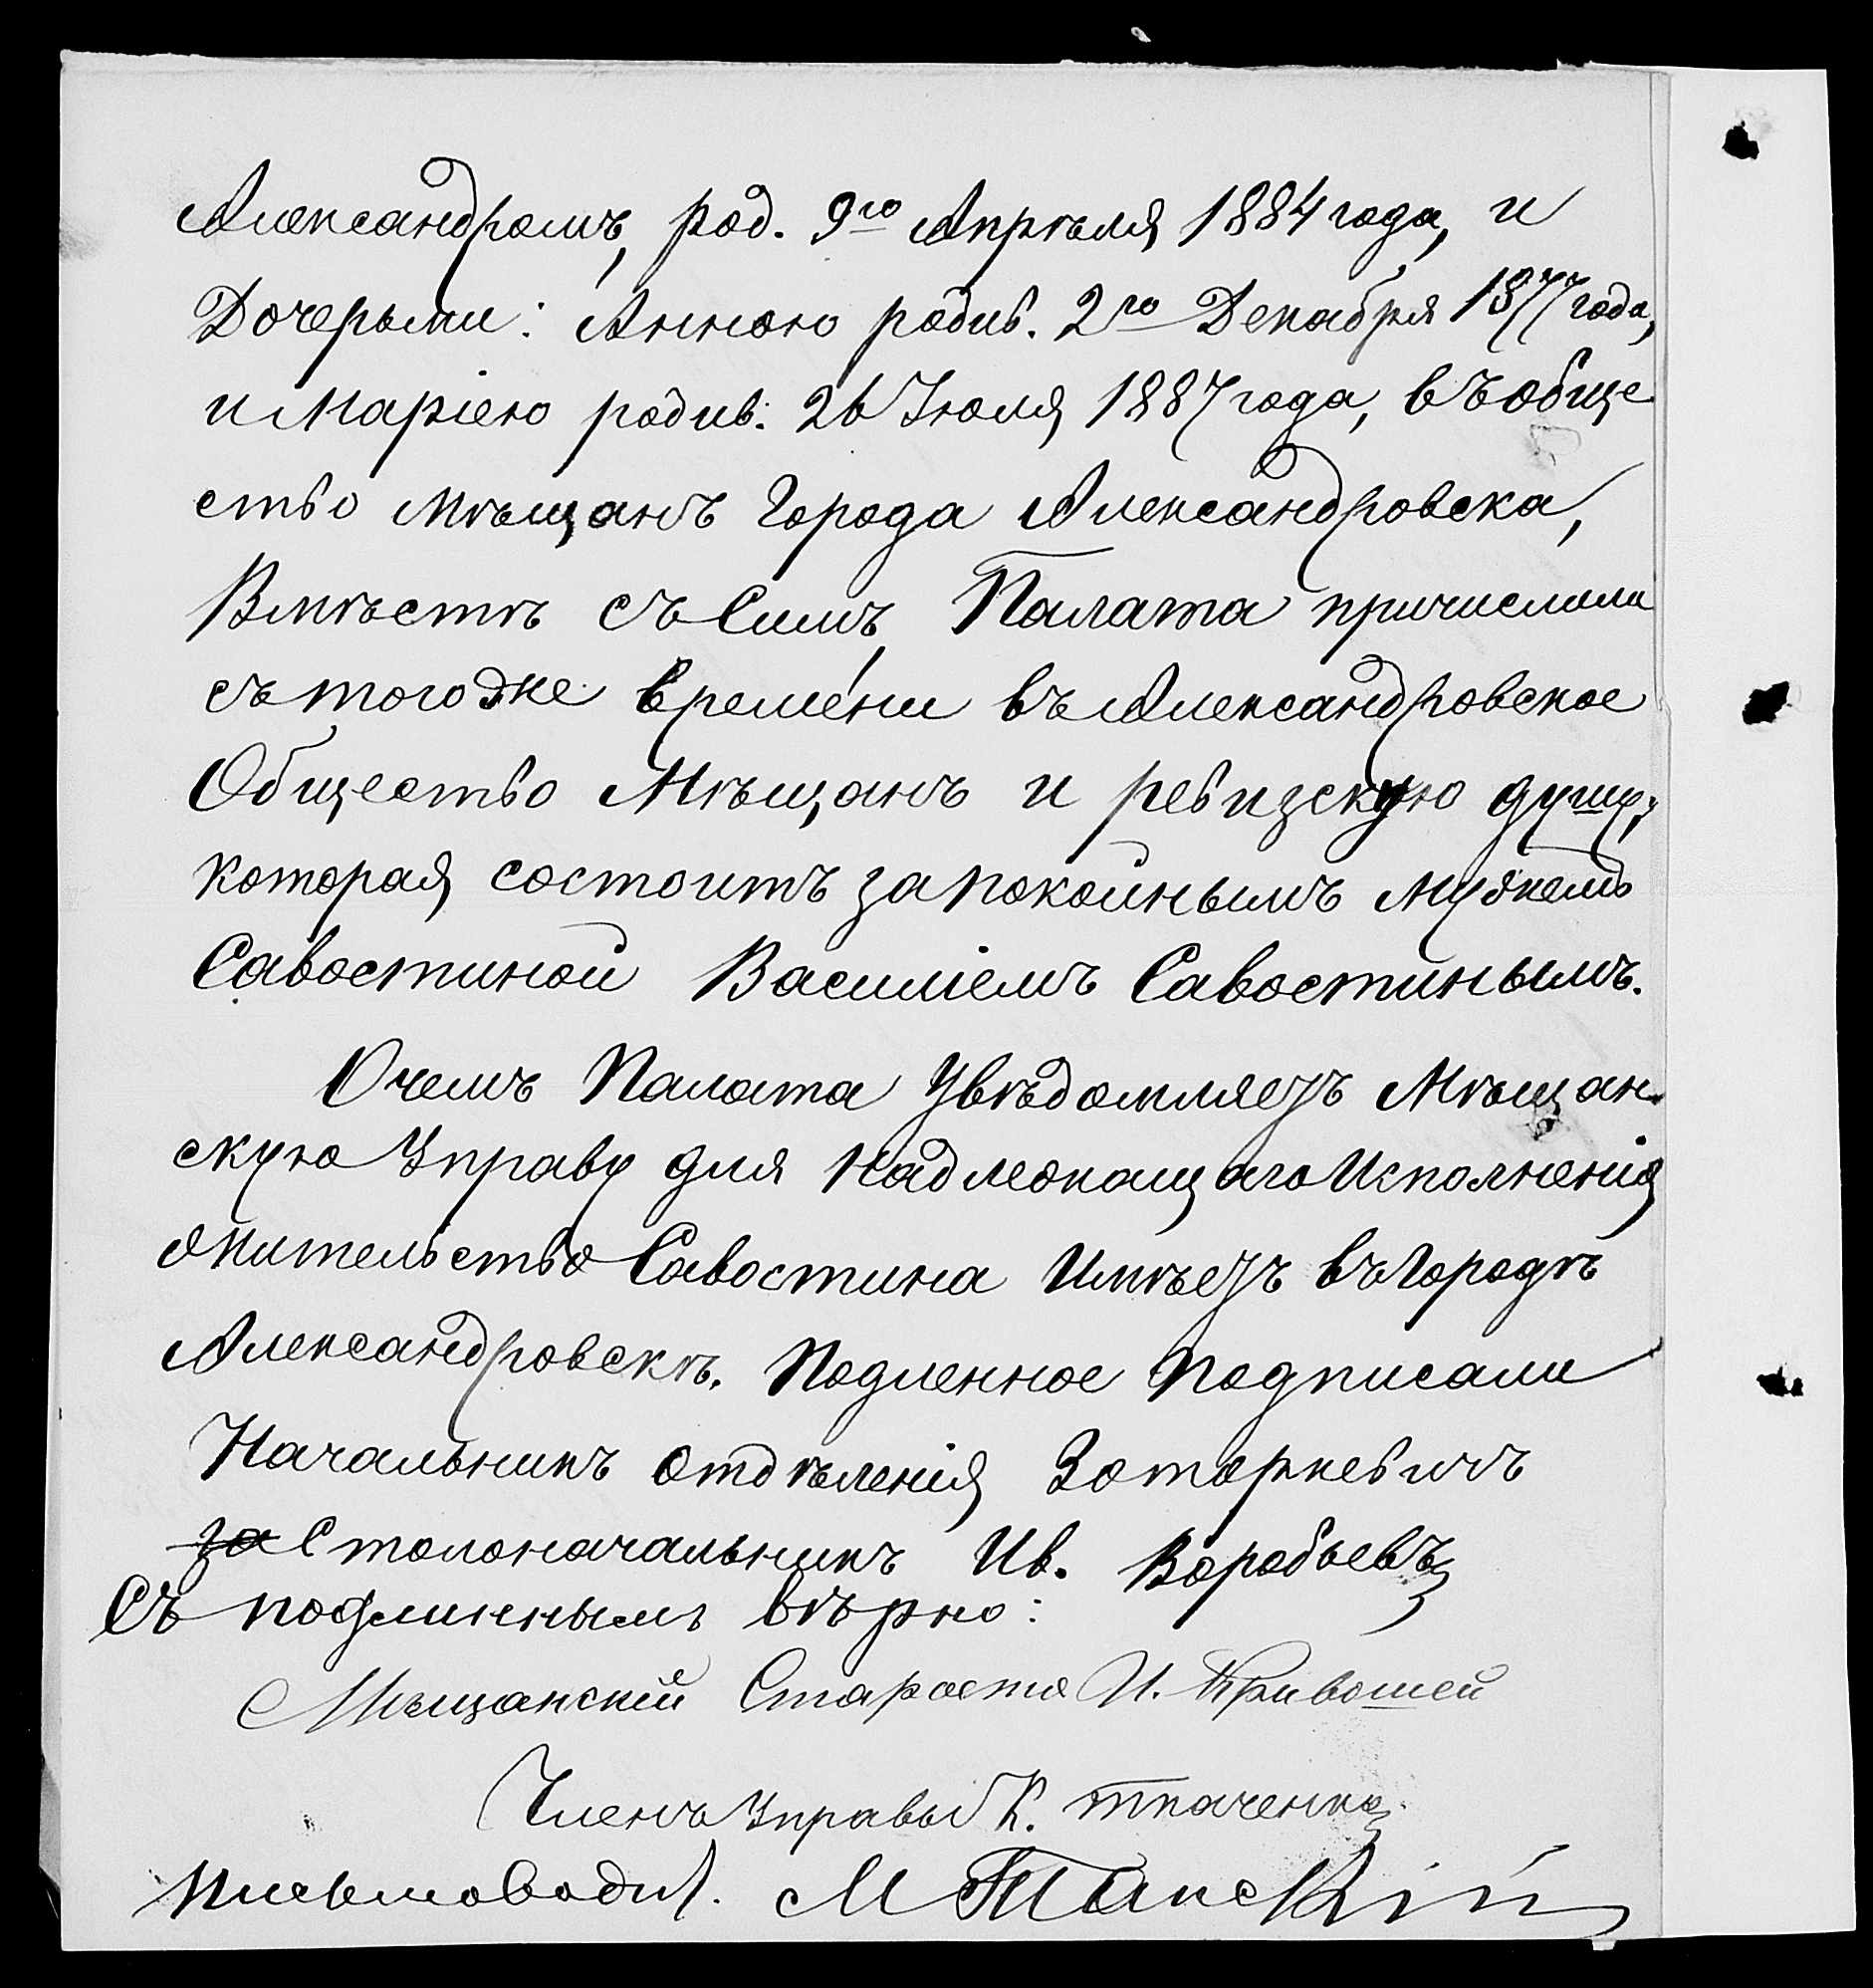 Александромъ, род. 9го Апрѣля 1884 года, и
Дочерьми: Анною родив. 2го Декабря 1877 года,
и Маріею родив. 26 Іюля 1887 года, въ обще
ство мѣщанъ Города Александровска,
Вмѣстѣ съ Симъ, Палата причислила
съ того же времени въ Александровское
Общество Мѣщанъ и ревизскую душу,
которая состоитъ за покойнымъ мужемъ
Савостиной Василіемъ Савостинымъ.
О чемъ Палата Увѣдомляетъ Мѣщан-
скую Управу для надлежащаго Исполненія
жительство Савостина Имѣетъ въ Городѣ
Александровскѣ. Подленное Подписали
Начальникъ Отдѣленія Зоторкевичъ
за Столоначальникъ Ив. Воробьевъ
Съ подлиннымъ вѣрно:
Мѣщанскій Староста И. Кривошей
Членъ Управы К. Ткаченко
Письмовод. М